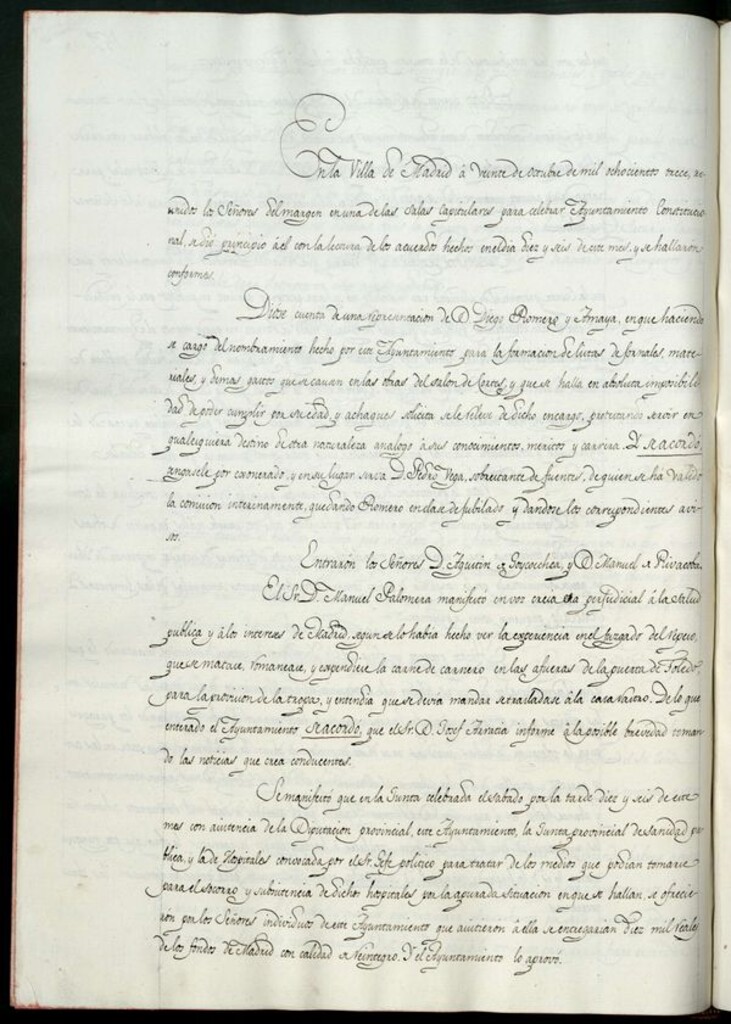 En la Villa de Madrid á veinte de octubre de mil ochocientos trece, re-
unidos los Señores del margen en una de las salas capitulares para celebrar Ayuntamiento Constitucio-
nal, se dió principio á él con la lectura de los acuerdos hechos en el dia diez y seis de este mes, y se hallaron
conformes.
Diose cuenta de una representacion de D. Diego Romero y Amaya, en que haciendo-
se cargo del nombramiento hecho por este Ayuntamiento para la formacion de listas de jornales, mate-
riales, y demas gastos que se causan en las obras del salon de Cortes, y que se halla en absoluta imposibili-
dad de poder cumplir por su edad, y achaques solicita se le releve de dicho encargo, protestando servir en
qualesquiera destino de otra naturaleza analogo á sus conocimientos, meritos y carrera. Y se acordó,
tengasele por exonerado, y en su lugar sirva D. Pedro Vega, sobrestante de fuentes, de quien se ha valido
la comision interinamente, quedando Romero en clase de jubilado y dandose los correspondientes avi-
sos.
Entraron los Señores D. Agustin de Goycoechea, y D. Manuel de Rivacoba.
El Sr. D. Manuel Palomera manifestó en voz crecia era perjudicial á la salud
publica y á los intereses de Madrid, segun se lo habia hecho ver la experiencia en el juzgado del repeso,
que se matase, romanease, y expendiese la carne de carnero en las afueras de la puerta de Toledo,
para la provision de la tropa, y entendia que se devia mandar se trasladase á la casa rastro. De lo que
enterado el Ayuntamiento se acordó, que el Sr. D. Josef informe á la posible brevedad toman-
do las noticias que crea conducentes.
Se manifestó que en la Junta celebrada el sabado por la tarde diez y seis de este
mes con asistencia de la Diputacion provincial, este Ayuntamiento, la Junta provincial de sanidad pu-
blica, y la de Hospitales convocada por el Sr. Gefe politico para tratar de los medios que podian tomarse
para el socorro y subsistencia de dichos hospitales por la apurada situacion en que se hallan, se ofrecie-
rón por los Señores individuos de este Ayuntamiento que asistieron á ella se entregarian diez mil reales
de los fondos de Madrid con calidad de reintegro. Y el Ayuntamiento lo aprovó.